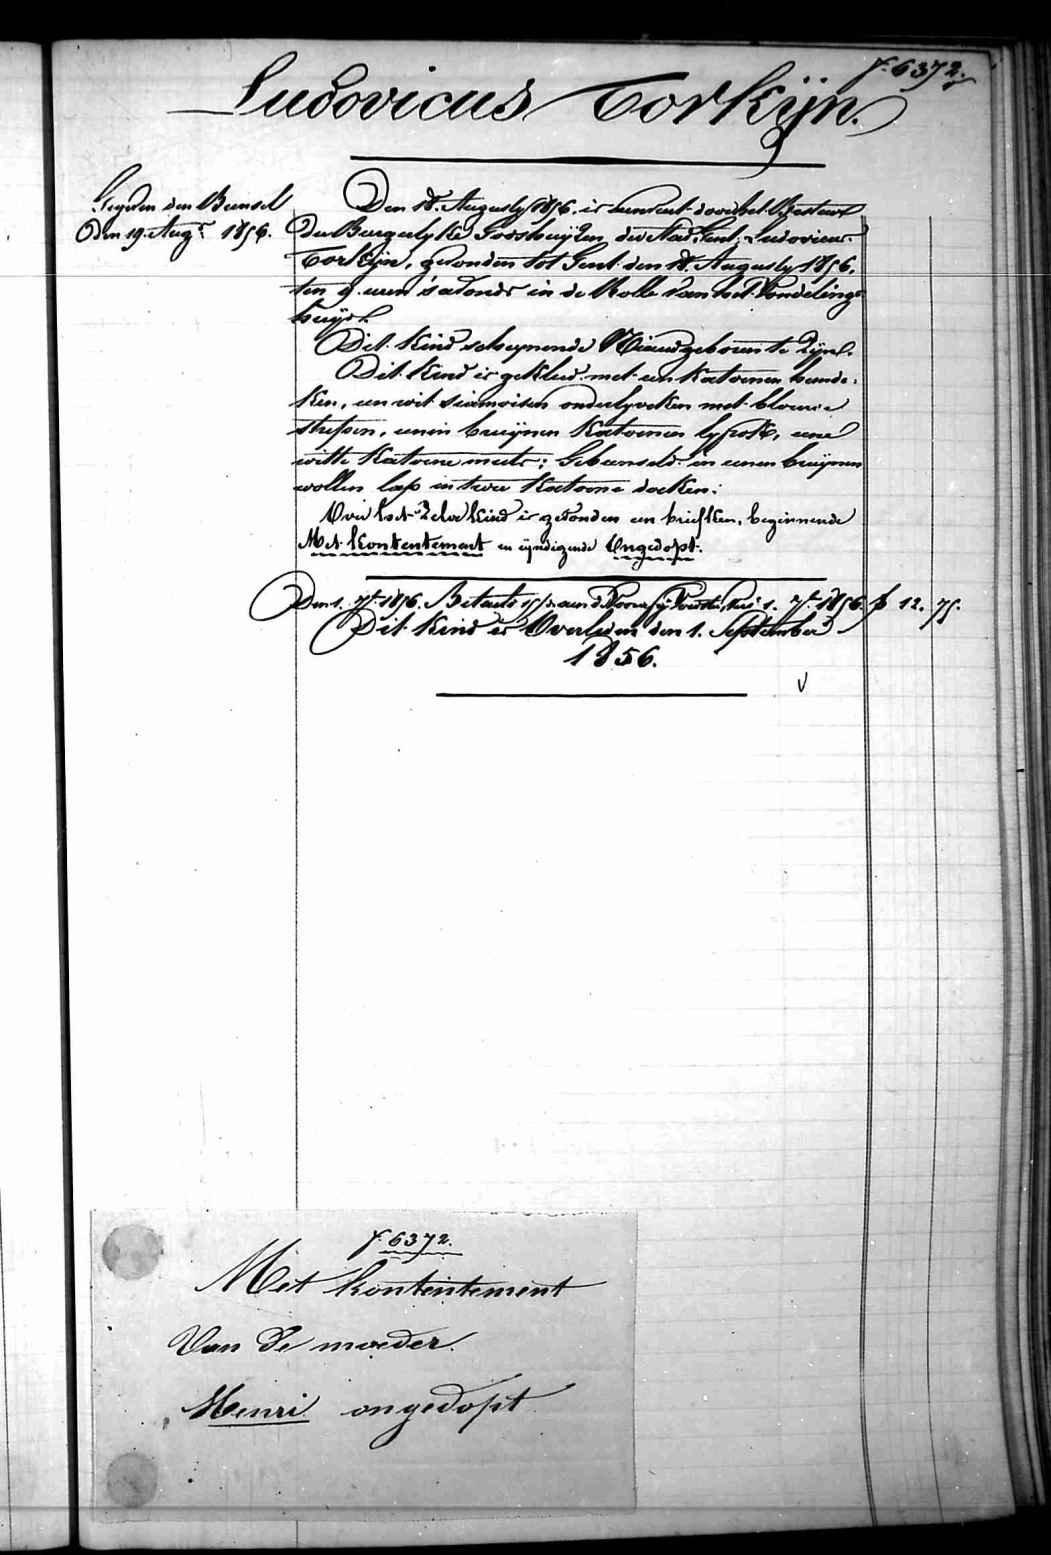 f. 6372.
Ludovicus Torkijn.
Gegeven den Bunsel
Den 19. Augt. 1856.
Den 18. Augusty 1856. is aenveerd door het Bestuer
der Burgerlyke Godshuijzen der Stad Gent: Ludovicus
Torkijn, gevonden tot Gent den 18. Augusty 1856.
ten 9. uren 's avonds in de Rolle van het Vondeling-
huijs.
Dit Kind schynende Nieuwgeboren te Zyn.
Dit Kind is gekleed met een Katoenen hemde-
ken, een wit siamoisen onderlyveken met blauwe
streepen, eenen bruijnen Katoenen lyfrok, eene
witte Katoene muts; Gebunseld in eenen bruijnen
wollen lap en twee Katoene doeken:
Over het Zelve kind is gevonden een briefken, beginnende
Met kontentement en eyndigende Ongedopt.
Den 1. 7bre 1856. Betaelt 1. 7bre 1856. f 12. 75.
Dit Kind is Overleden den 1. September
1856.
f. 6372.
Met kontentement
Van de moeder.
Henri ongedopt